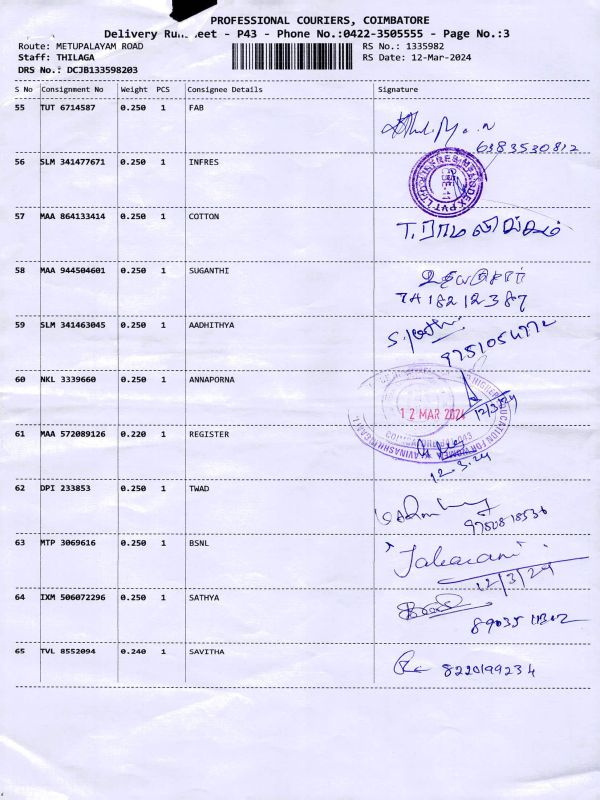 PROFESSIONAL COURIERS, COIMBATORE
Delivery Runsheet - P43 - Phone No.:0422-3505555 - Page No.:3
Route: METUPALAYAM ROAD
RS No.: 1335982
Staff: THILAGA
RS Date: 12-Mar-2024
DRS No.: DCJB133598203
S No Consignment No Weight PCS Consignee Details Signature
55 TUT 6714587 0.250 1 FAB
6383530812
56 SLM 341477671 0.250 1 INFRES
57 MAA 864133414 0.250 1 COTTON
58 MAA 944504601 0.250 1 SUGANTHI
7418212387
59 SLM 341463045 0.250 1 AADHITHYA
9751054772
60 NKL 3339660 0.250 1 ANNAPORNA
12 MAR 2024
12/3/24
61 MAA 572089126 0.220 1 REGISTER
12.3.24
62 DPI 233853 0.250 1 TWAD
9750818536
63 MTP 3069616 0.250 1 BSNL
12/3/24
64 IXM 506072296 0.250 1 SATHYA
65 TVL 8552094 0.240 1 SAVITHA
8220199234